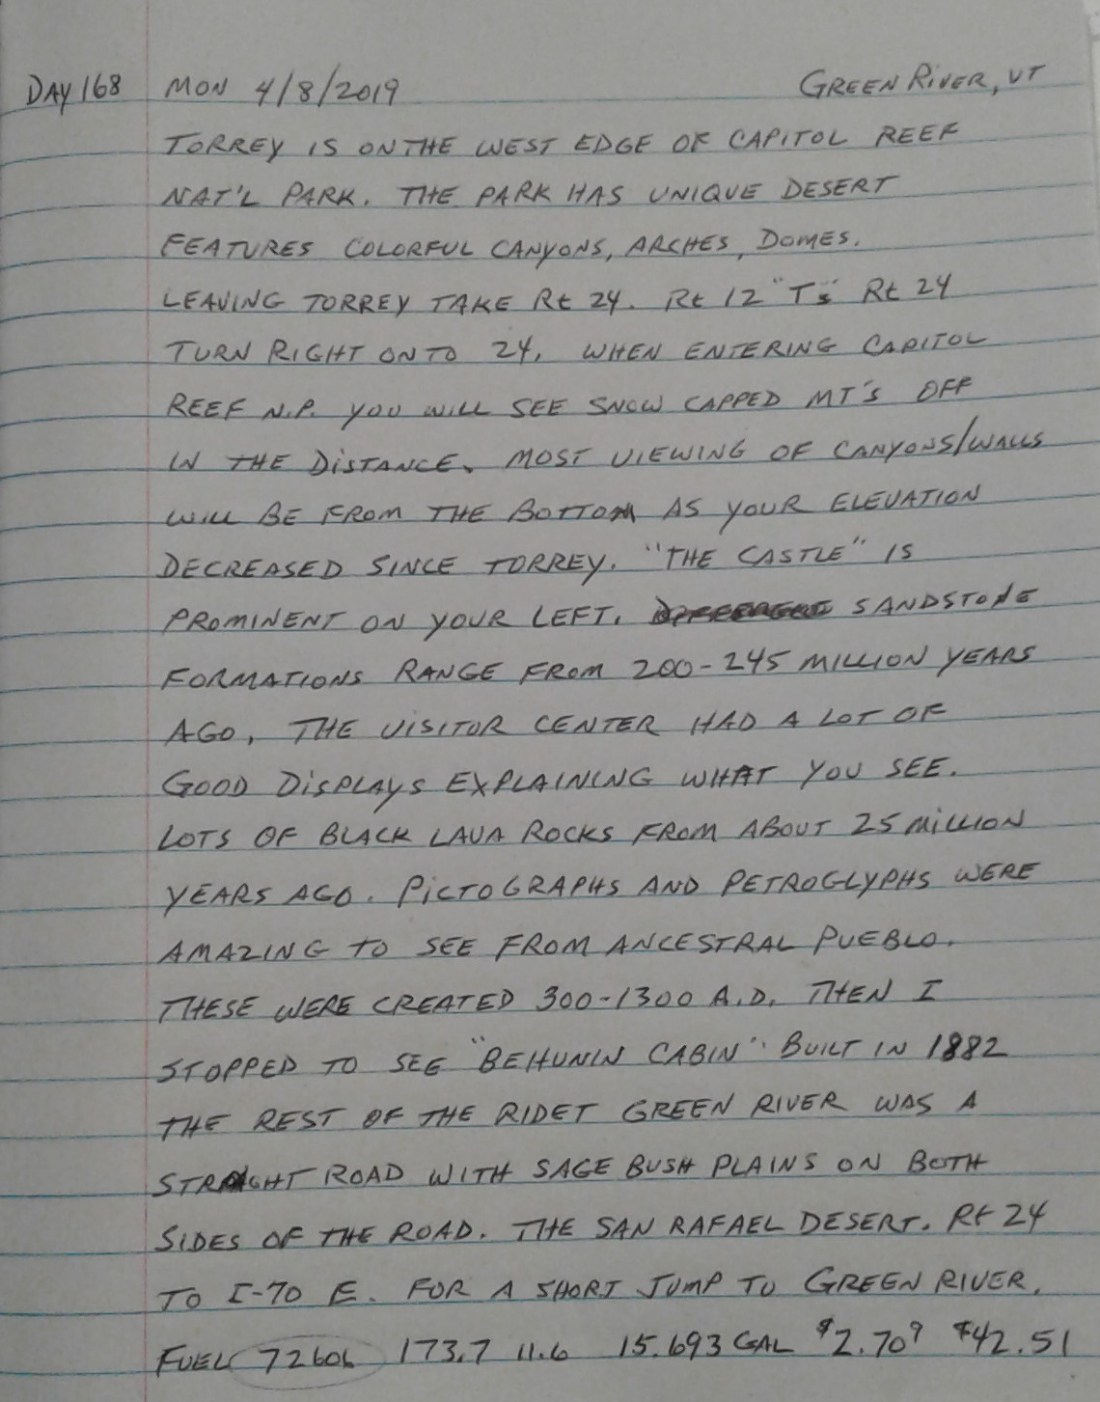 DAY 168 MON 4/8/2019 GREEN RIVER, UT
TORREY IS ON THE WEST EDGE OF CAPITOL REEF
NAT'L PARK. THE PARK HAS UNIQUE DESERT
FEATURES COLORFUL CANYONS, ARCHES, DOMES.
LEAVING TORREY TAKE Rt 24. Rt 12 "T's" Rt 24
TURN RIGHT ONTO 24. WHEN ENTERING CAPITOL
REEF N.P. YOU WILL SEE SNOW CAPPED MT'S OFF
IN THE DISTANCE. MOST VIEWING OF CANYONS/WALLS
WILL BE FROM THE BOTTOM AS YOUR ELEVATION
DECREASED SINCE TORREY. "THE CASTLE" IS
PROMINENT ON YOUR LEFT. SANDSTONE
FORMATIONS RANGE FROM 200-245 MILLION YEARS
AGO. THE VISITOR CENTER HAD A LOT OF
GOOD DISPLAYS EXPLAINING WHAT YOU SEE.
LOTS OF BLACK LAVA ROCKS FROM ABOUT 25 MILLION
YEARS AGO. PICTOGRAPHS AND PETROGLYPHS WERE
AMAZING TO SEE FROM ANCESTRAL PUEBLO.
THESE WERE CREATED 300-1300 A.D. THEN I
STOPPED TO SEE "BEHUNIN CABIN" BUILT IN 1882
THE REST OF THE RIDET GREEN RIVER WAS A
STRAIGHT ROAD WITH SAGE BUSH PLAINS ON BOTH
SIDES OF THE ROAD. THE SAN RAFAEL DESERT. Rt 24
TO I-70 E. FOR A SHORT JUMP TO GREEN RIVER.
FUEL 72606 173.7 11.6 15.693 GAL $2.70⁹ $42.51